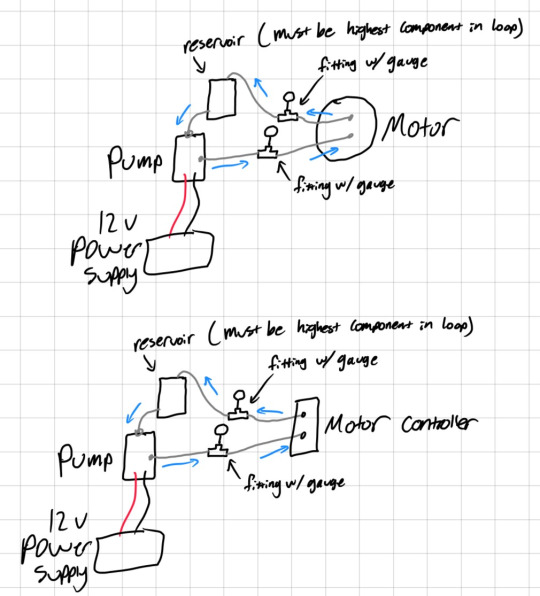 reservoir (must be highest component in loop)
fitting w/ gauge
Motor
Pump
fitting w/ gauge
12 v
Power
supply
reservoir (must be highest component in loop)
fitting w/ gauge
Motor Controller
Pump
fitting w/ gauge
12 v
Power
supply